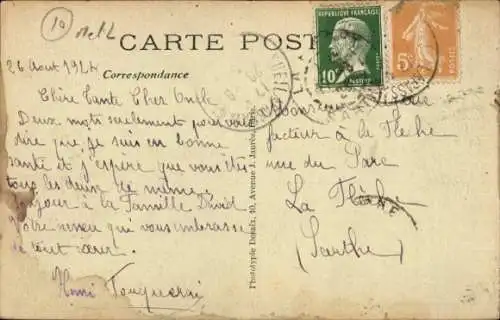 10
CARTE POST
Correspondance
REPUBLIQUE FRANÇAISE
10c
5c
26 Août 1924
Chère Tante Cher Oncle
Deux mots seulement pour vous
dire que je suis en bonne
santé et j'espère que vous êtes
tous les deux de même.
Bonjour à la Famille David
Votre neveu qui vous embrasse
de tout cœur.
Henri
Phototypie Desaix, 40, Avenue J. Jaurès, Paris
Monsieur
facteur à la Flèche
rue du Parc
La Flèche
(Sarthe)